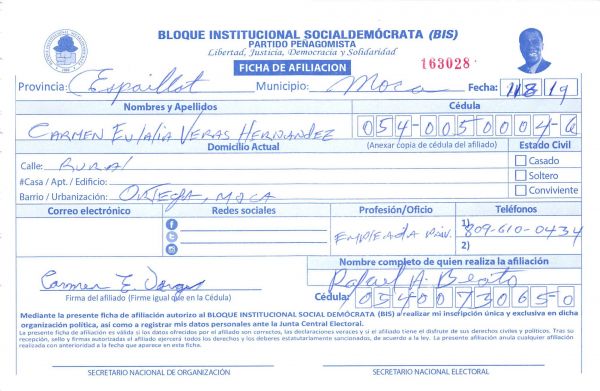 BLOQUE INSTITUCIONAL SOCIALDEMÓCRATA (BIS)
PARTIDO PEÑAGOMISTA
Libertad, Justicia, Democracia y Solidaridad
FICHA DE AFILIACION
163028
Provincia: Espaillat Municipio: Moca Fecha: 11819
Nombres y Apellidos Cédula
CARMEN EULALIA VERAS HERNANDEZ 054-0050004-6
Domicilio Actual (Anexar copia de cédula del afiliado) Estado Civil
Calle: RURAL Casado
#Casa / Apt. / Edificio: Soltero
Barrio / Urbanización: ORTEGA, MOCA Conviviente
Correo electrónico Redes sociales Profesión/Oficio Teléfonos
EMPLEADA PRIV. 1) 809-610-0434
2)
Nombre completo de quien realiza la afiliación
Carmen E. Rafael A. Beato
Firma del afiliado (Firme igual que en la Cédula) Cédula: 05400730650
Mediante la presente ficha de afiliación autorizo al BLOQUE INSTITUCIONAL SOCIAL DEMÓCRATA (BIS) a realizar mi inscripción única y exclusiva en dicha
organización política, así como a registrar mis datos personales ante la Junta Central Electoral.
La presente ficha de afiliación es válida si los datos ofrecidos por el afiliado son correctos, las declaraciones veraces y si el afiliado tiene el disfrute de sus derechos civiles y políticos. Tras su
recepción, sello y firmas autorizadas el afiliado ejercerá todos los derechos y los deberes estatutariamente sancionados, de acuerdo a la ley. La presente afiliación anula cualquier afiliación
realizada con anterioridad a la fecha que aparece en esta ficha.
SECRETARIO NACIONAL DE ORGANIZACIÓN SECRETARIO NACIONAL ELECTORAL